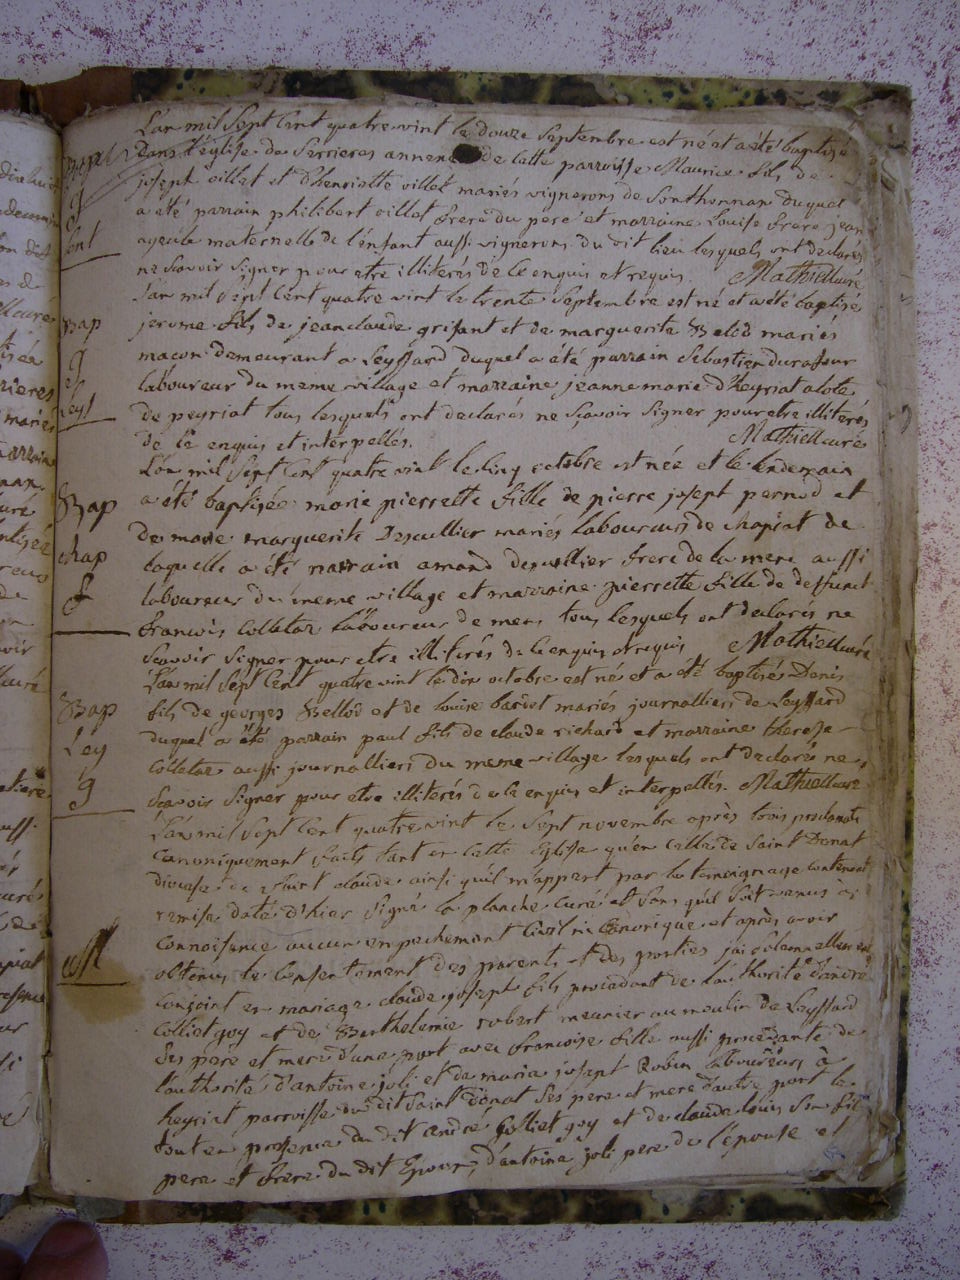 L'an mil sept cent quatre vint le douze septembre est né et a été baptisé
dans l'église de Serrieres annexe de cette parroisse Maurice fils de
josept oillet et d'henriette villet mariés vignerons de Sonthonnan duquel
a été parrain philibert oillet frere du pere et marraine Louise frere jean
ayeule maternelle de l'enfant aussi vignerons du dit lieu lesquels ont declarés
ne scavoir signer pour etre illiterés de ce enquis et requis Mathieu curé
Bap
g
L'an mil sept cent quatre vint le trente septembre est né et a été baptisé
jerome fils de jeanclaude grisant et de marguerite Belod mariés
maçon demeurant a Leyssard duquel a été parrain Sebastien durafour
laboureur du meme village et marraine jeannemarie d'heyriat
de peyriat tous lesquels ont declarés ne scavoir signer pour etre illiterés
de ce enquis et interpellés. Mathieu curé
Bap
chap
f
L'an mil sept cent quatre vint le cinq octobre est née et le lendemain
a été baptisée marie pierrette fille de pierre josept pernod et
de marie marguerite Descullier mariés laboureurs de chapiat de
laquelle a été parrain amand descullier frere de la mere aussi
laboureur du meme village et marraine pierrette fille de deffunct
francois colletaz laboureur de mens tous lesquels ont declarés ne
scavoir signer pour etre illiterés de ce enquis et requis Mathieu curé
Bap
Ley
g
L'an mil sept cent quatre vint le dix octobre est né et a été baptisés Denis
fils de georges Bellod et de louise bardet mariés journalliers de Leyssard
duquel a été parrain paul fils de claude richard et marraine therese
colletaz aussi journalliers du meme village lesquels ont declarés ne
scavoir signer pour etre illiterés de ce enquis et interpellés. Mathieu curé
L'an mil sept cent quatre vint le sept novembre après trois proclamats
canoniquement faits tant en cette Eglise qu'en celle de Saint Donat
diocese de Saint claude ainsi qu'il m'appert par le temoignage contenant
remise daté d'hier signé la planche curé et sans qu'il soit venus a
connoisance aucun enpechement civil ni canonique et après avoir
obtenus le consentement des parents et des parties j'ai solemnellement
conjoint en mariage claude josept fils procedant de l'authorité d'andré
colliet goy et de Berthelemie robert meunier au moulin de Leyssard
ses pere et mere d'une part avec francoise fille aussi procedante de
l'authorité d'antoine joli et de marie josept Robin laboureurs à
heyriat parroisse du dit saint donat ses pere et mere d'autre part le
tout en presence du dit andré Colliet goy et de claude louis son fils
pere et frere du dit Epoux, d'antoine joli pere de l'épouse et